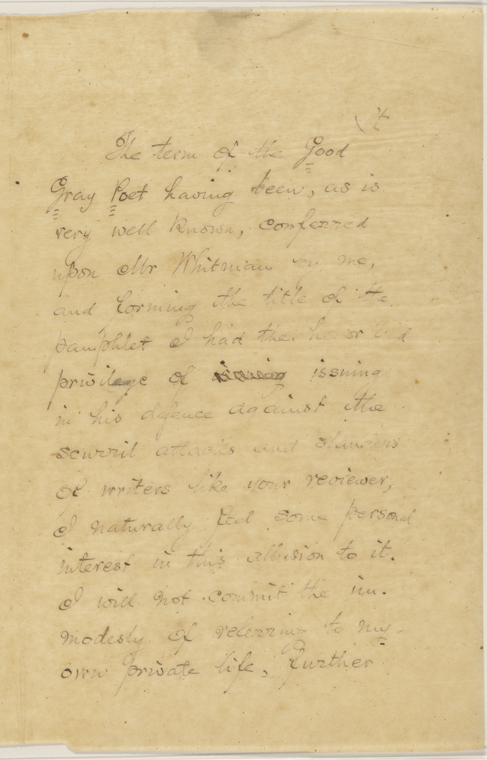 The term of the Good
Gray Poet having been, as is
very well known, conferred
upon Mr Whitman by me,
and forming the title of the
pamphlet I had the honor and
privilege of issuing
in his defence against the
scurril attacks and slanders
of writers like your reviewer,
I naturally feel some personal
interest in this allusion to it.
I will not commit the im-
modesty of referring to my
own private life, further